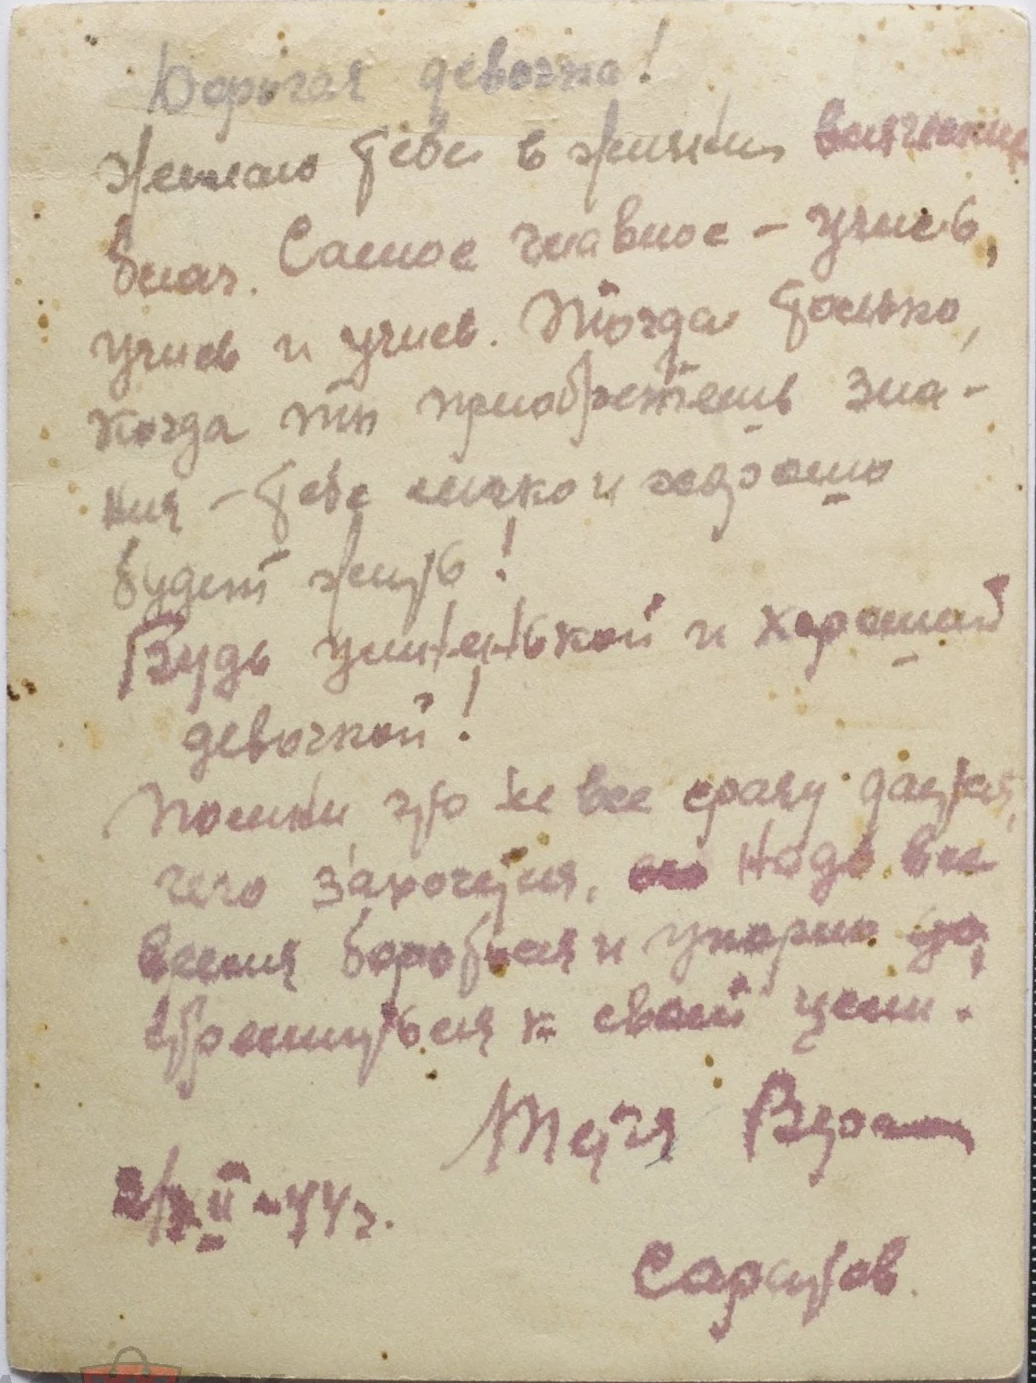 Дорогая девочка!
Желаю тебе в жизни всяческих
благ. Самое главное – учись,
учись и учись. Тогда только,
когда ты приобретешь зна-
ния – тебе легко и хорошо
будет жить!
Будь учительской и хорошей
девочкой!
Помни что не все сразу дается,
чего захочется, надо все
время бороться и упорно
стремиться к своей цели.
Тетя Вера
2/XII-44г.
Саратов.